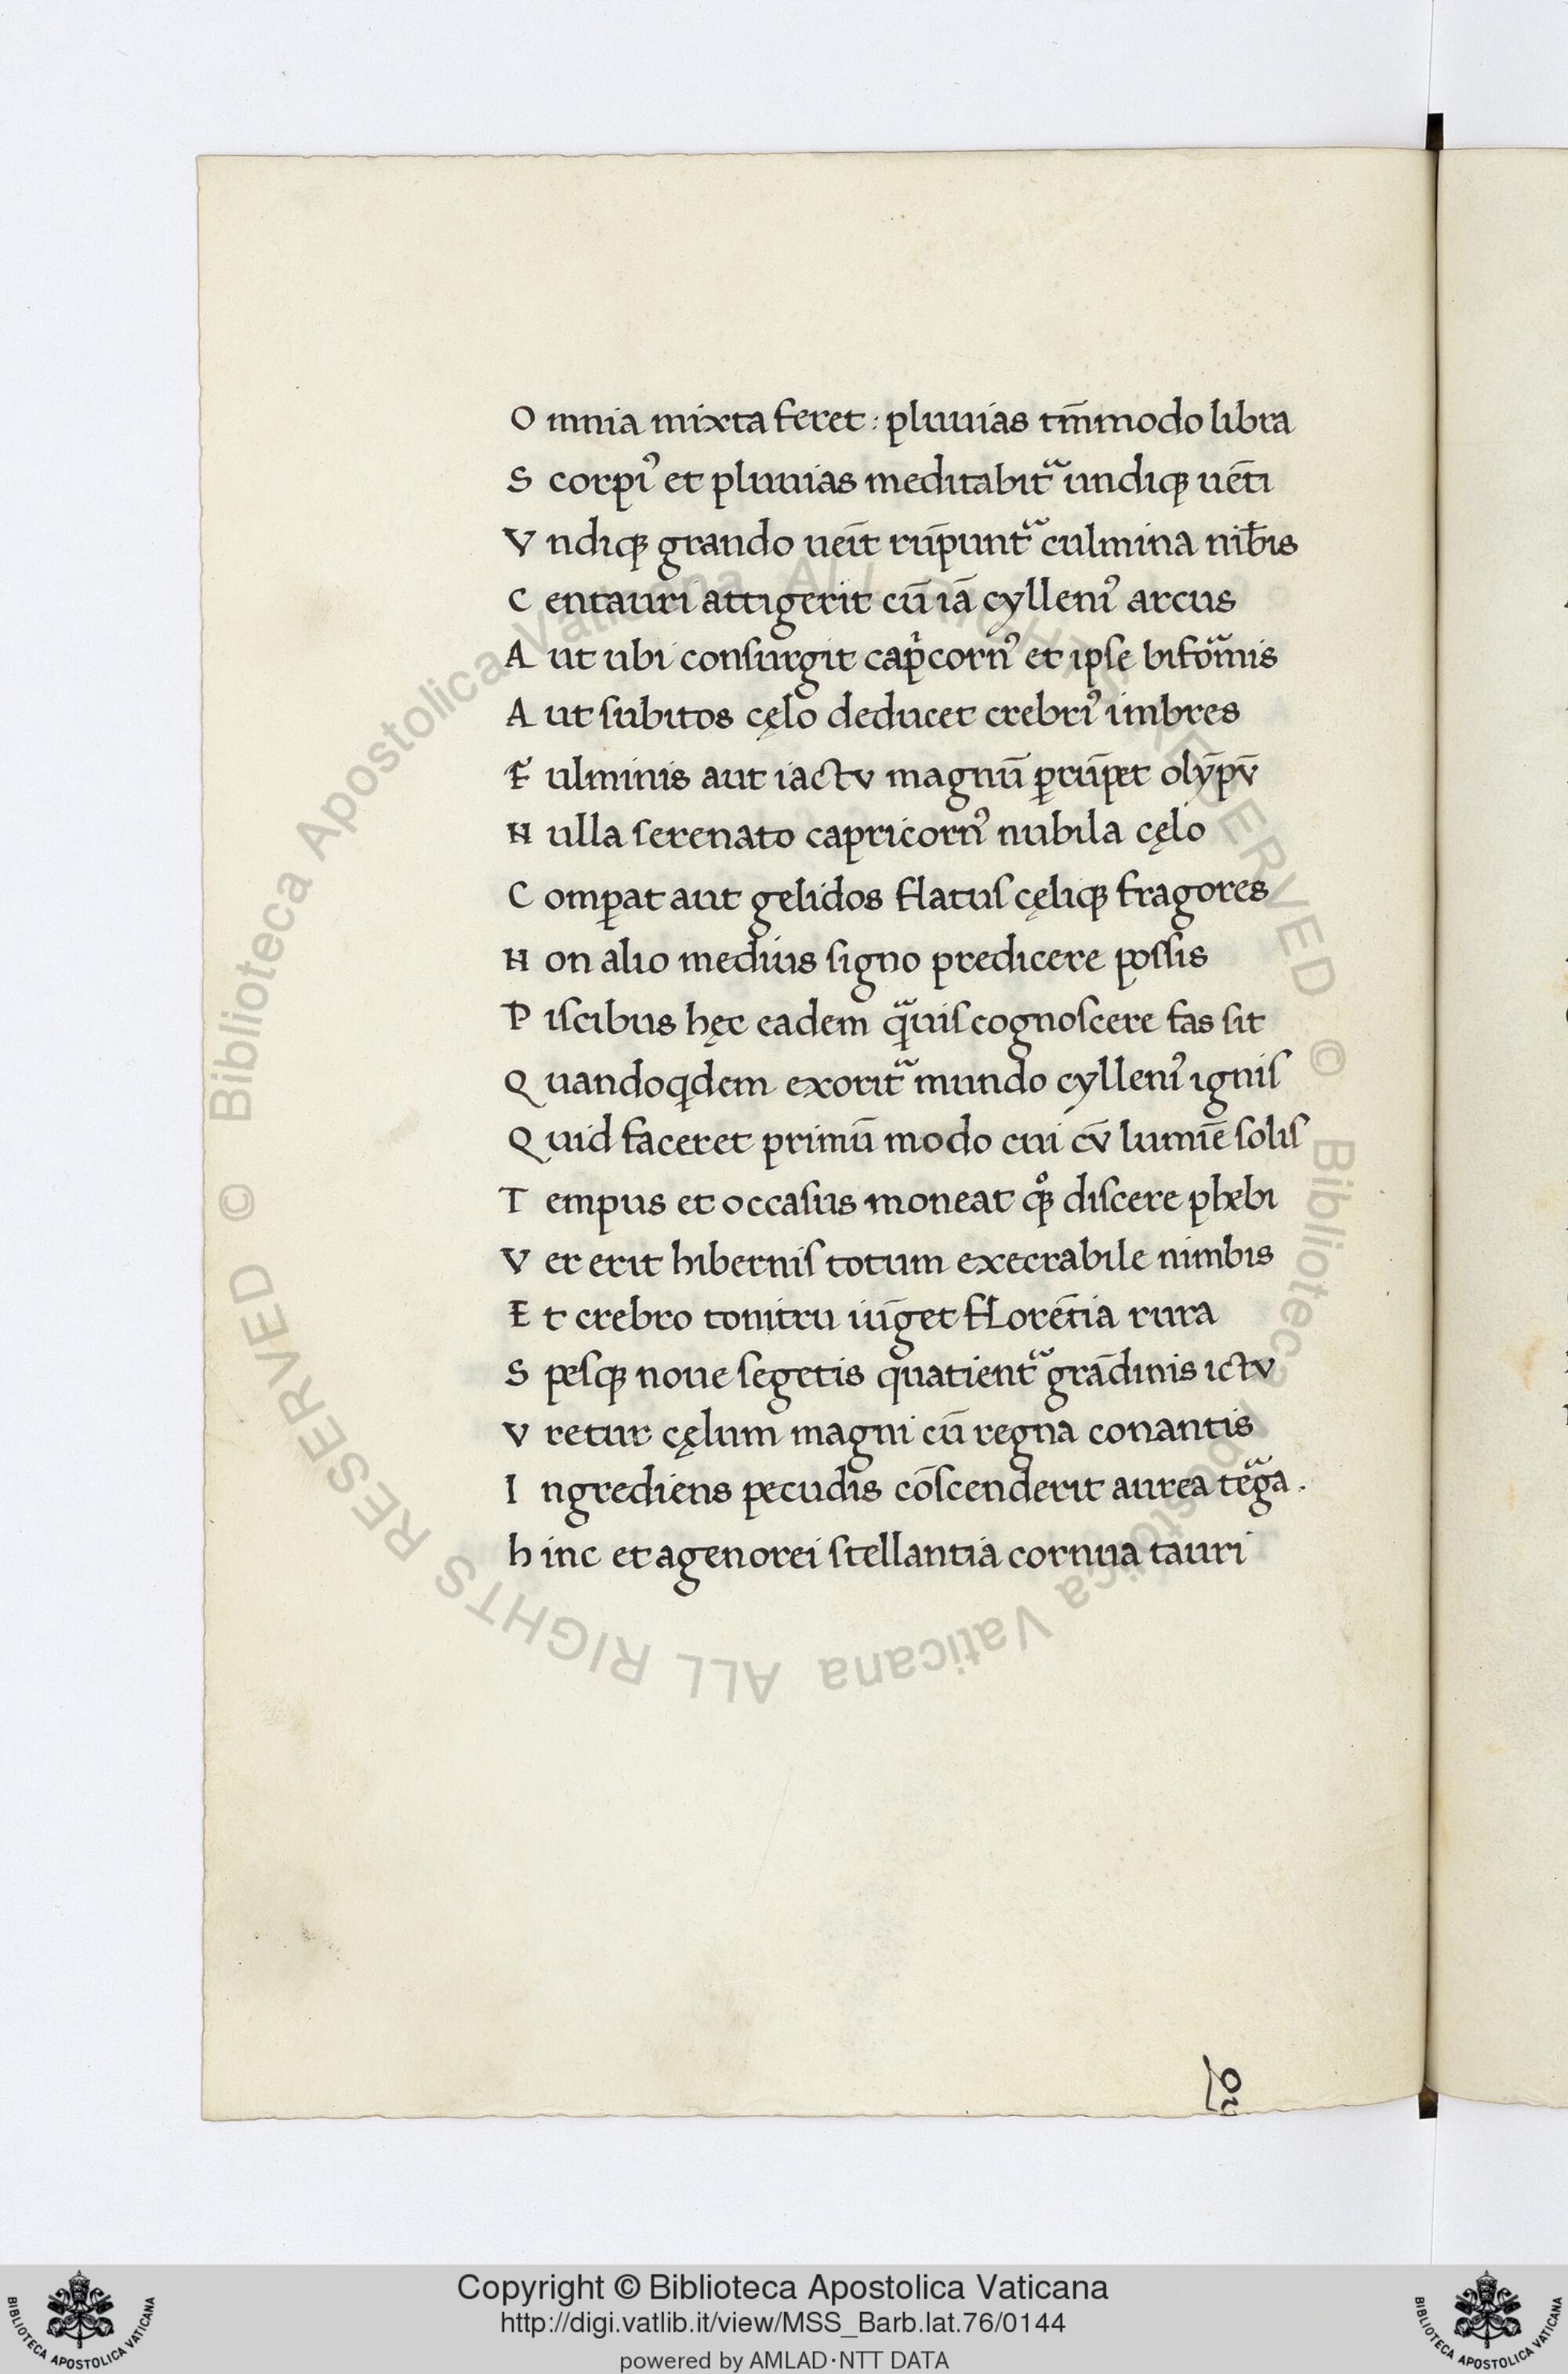 O mnia mixta feret : pluuias tm̄modo libra
S corpiꝰ et pluuias meditabitᷓ undiqꝫ uēti
V ndiqꝫ grando ueīt rūpuntᷓ culmina nīb̄is
C entauri attigerit cū iā cylleniꝰ arcus
A ut ubi consurgit capͥcornꝰ et ipse bifoᷓmis
A ut subitos cęlo deducet crebriꝰ imbres
F ulminis aut iactv magnū ꝑrūpet olȳpv̄
N ulla serenato capricornꝰ nubila cęlo
C omꝑat aut gelidos flatus cęliqꝫ fragores
N on alio medius signo predicere possis
P iscibus hęc eadem qᷓuis cognoscere fas sit
Q uandoꝗdem exoritᷓ mundo cylleniꝰ ignis
Q uid faceret primū modo cui cv̄ lumīe solis
T empus et occasus moneat qͦꝫ discere phebi
V er erit hibernis totum execrabile nimbis
E t crebro tonitru iūget florētia rura
S pesqꝫ noue segetis quatientᷓ grādinis ictv
V retur cęlum magni cū regna conantis
I ngrediens pecudis cōscenderit aurea teᷓga .
h inc et agenorei stellantia cornua tauri
Copyright © Biblioteca Apostolica Vaticana
http://digi.vatlib.it/view/MSS_Barb.lat.76/0144
powered by AMLAD·NTT DATA
© Biblioteca Apostolica Vaticana ALL RIGHTS RESERVED © Biblioteca Apostolica Vaticana ALL RIGHTS RESERVED
BIBLIOTECA APOSTOLICA VATICANA
BIBLIOTECA APOSTOLICA VATICANA